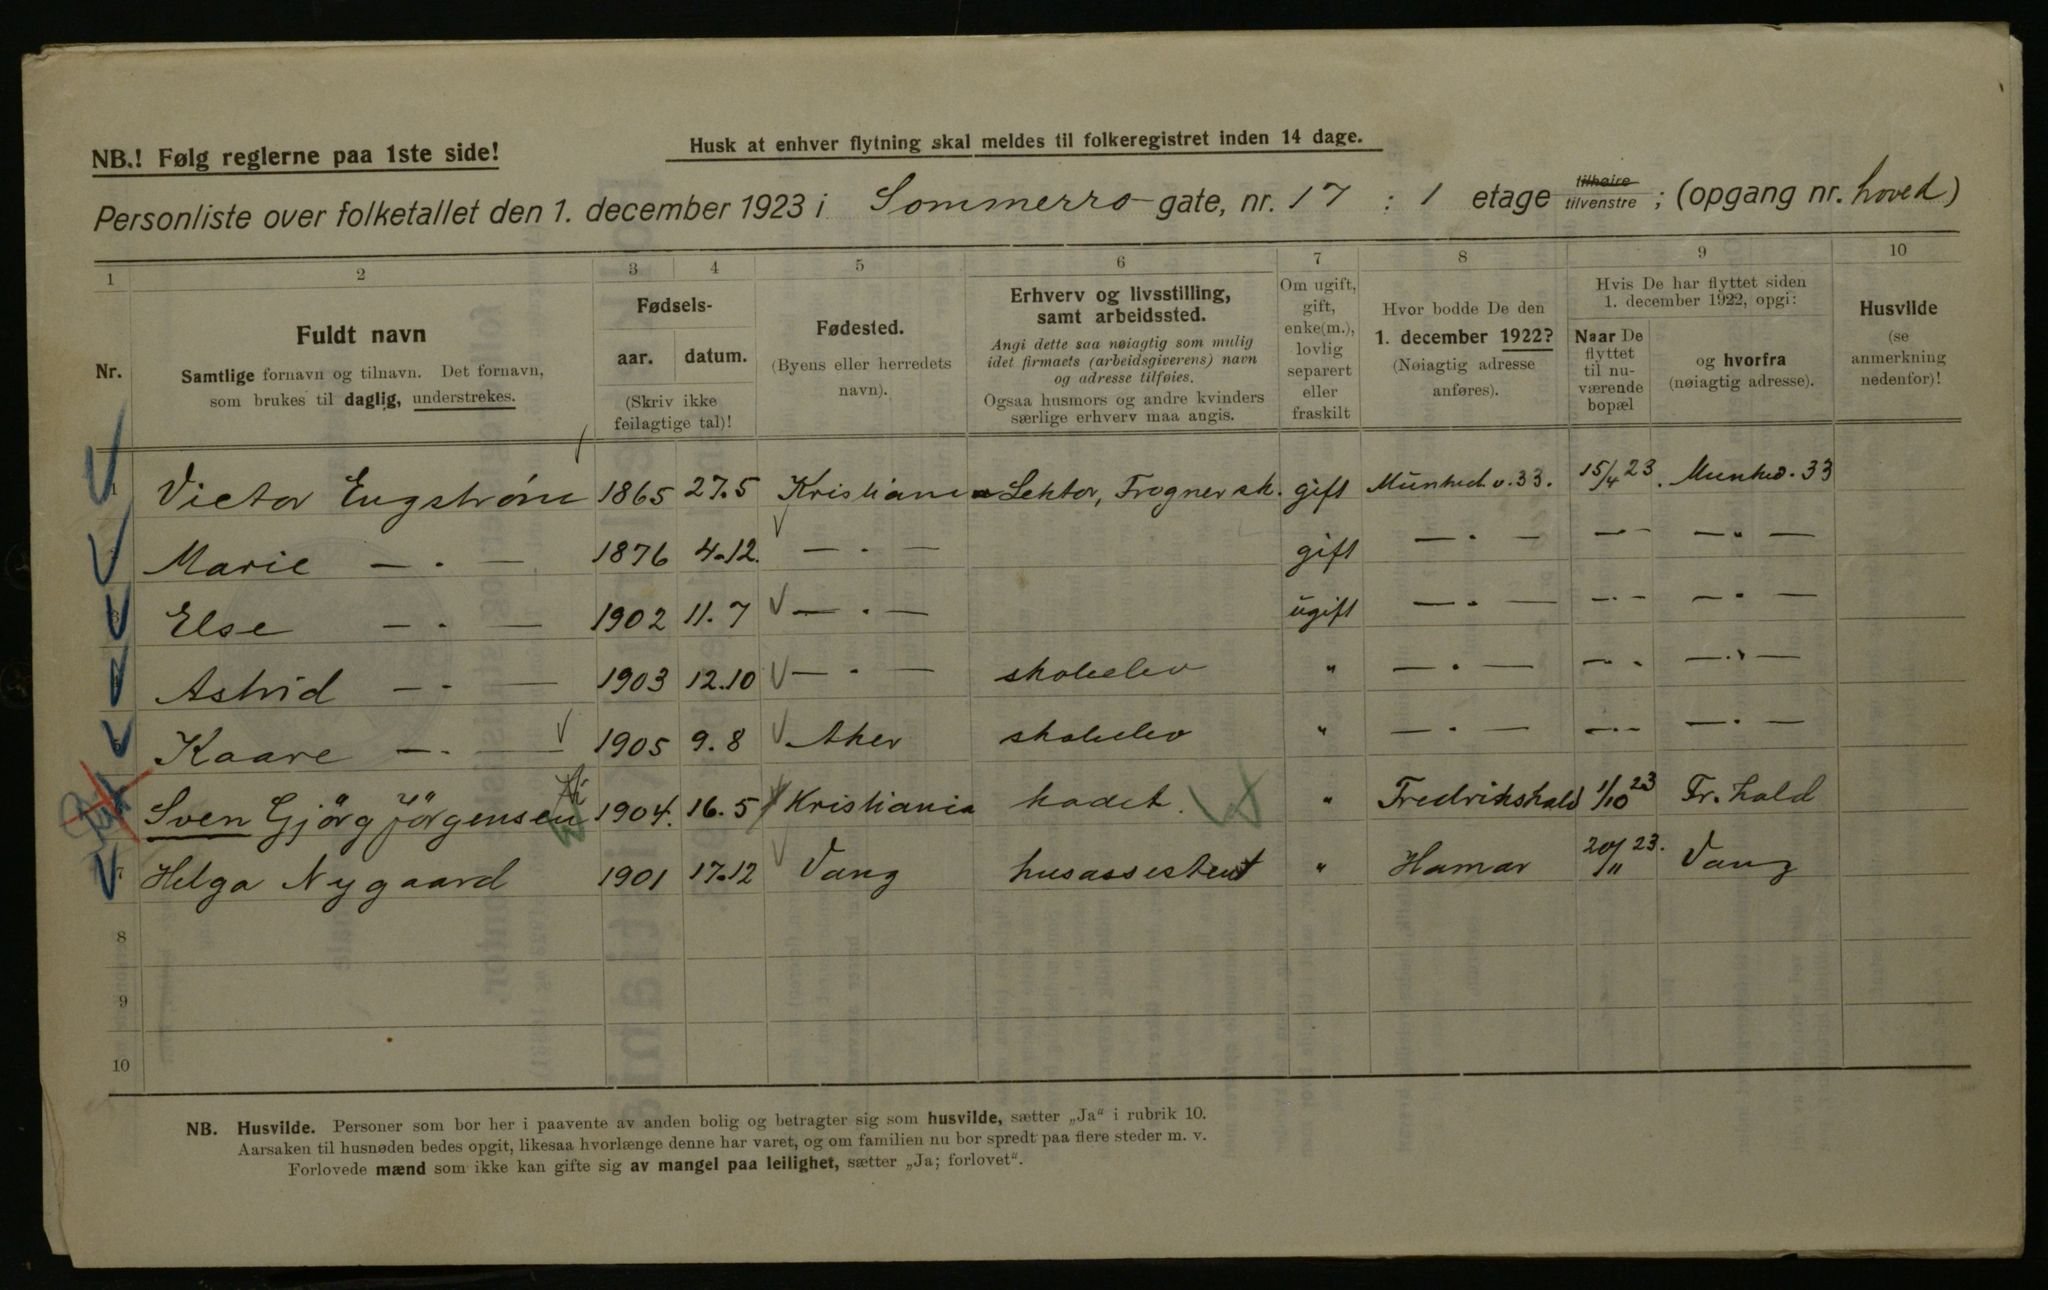 NB.! Følg reglerne paa 1ste side!
Husk at enhver flytning skal meldes til folkeregistret inden 14 dage.
Personliste over folketallet den 1. december 1923 i Sommerro gate, nr. 17 : 1 etage tilhøire tilvenstre ; (opgang nr. hoved)
1 2 3 4 5 6 7 8 9 10
Nr.
Fuldt navn
Samtlige fornavn og tilnavn. Det fornavn,
som brukes til daglig, understrekes.
Fødsels-
aar. datum.
(Skriv ikke
feilagtige tal)!
Fødested.
(Byens eller herredets
navn).
Erhverv og livsstilling,
samt arbeidssted.
Angi dette saa nøiagtig som mulig
idet firmaets (arbeidsgiverens) navn
og adresse tilføies.
Ogsaa husmors og andre kvinders
særlige erhverv maa angis.
Om ugift,
gift,
enke(m.),
lovlig
separert
eller
fraskilt
Hvor bodde De den
1. december 1922?
(Nøiagtig adresse
anføres).
Hvis De har flyttet siden
1. december 1922, opgi:
Naar De
flyttet
til nu-
værende
bopæl
og hvorfra
(nøiagtig adresse).
Husvilde
(se
anmerkning
nedenfor)!
1 Victor Engstrøm 1865 27.5 Kristiania Lektor, Frogner sk. gift Munked v. 33. 15/4 23. Munked. 33
2 Marie — . — 1876 4.12. — . — gift — . — — . — — . —
3 Else — . — 1902 11.7 — . — ugift — . — — . — — . —
4 Astrid — . — 1903 12.10 — . — skoleelev " — . — — . — — . —
5 Kaare — . — 1905 9.8 Aker skoleelev " — . — — . — — . —
6 Sven Gjörg Jörgensen 1904. 16.5 Kristiania kadet. " Fredrikshald 1/10 23 Fr. hald
7 Helga Nygaard 1901 17.12 Vang husassistent " Hamar 20/11 23. Vang
8
9
10
NB. Husvilde. Personer som bor her i paavente av anden bolig og betragter sig som husvilde, sætter „Ja“ i rubrik 10.
Aarsaken til husnøden bedes opgit, likesaa hvorlænge denne har varet, og om familien nu bor spredt paa flere steder m. v.
Forlovede mænd som ikke kan gifte sig av mangel paa leilighet, sætter „Ja; forlovet“.